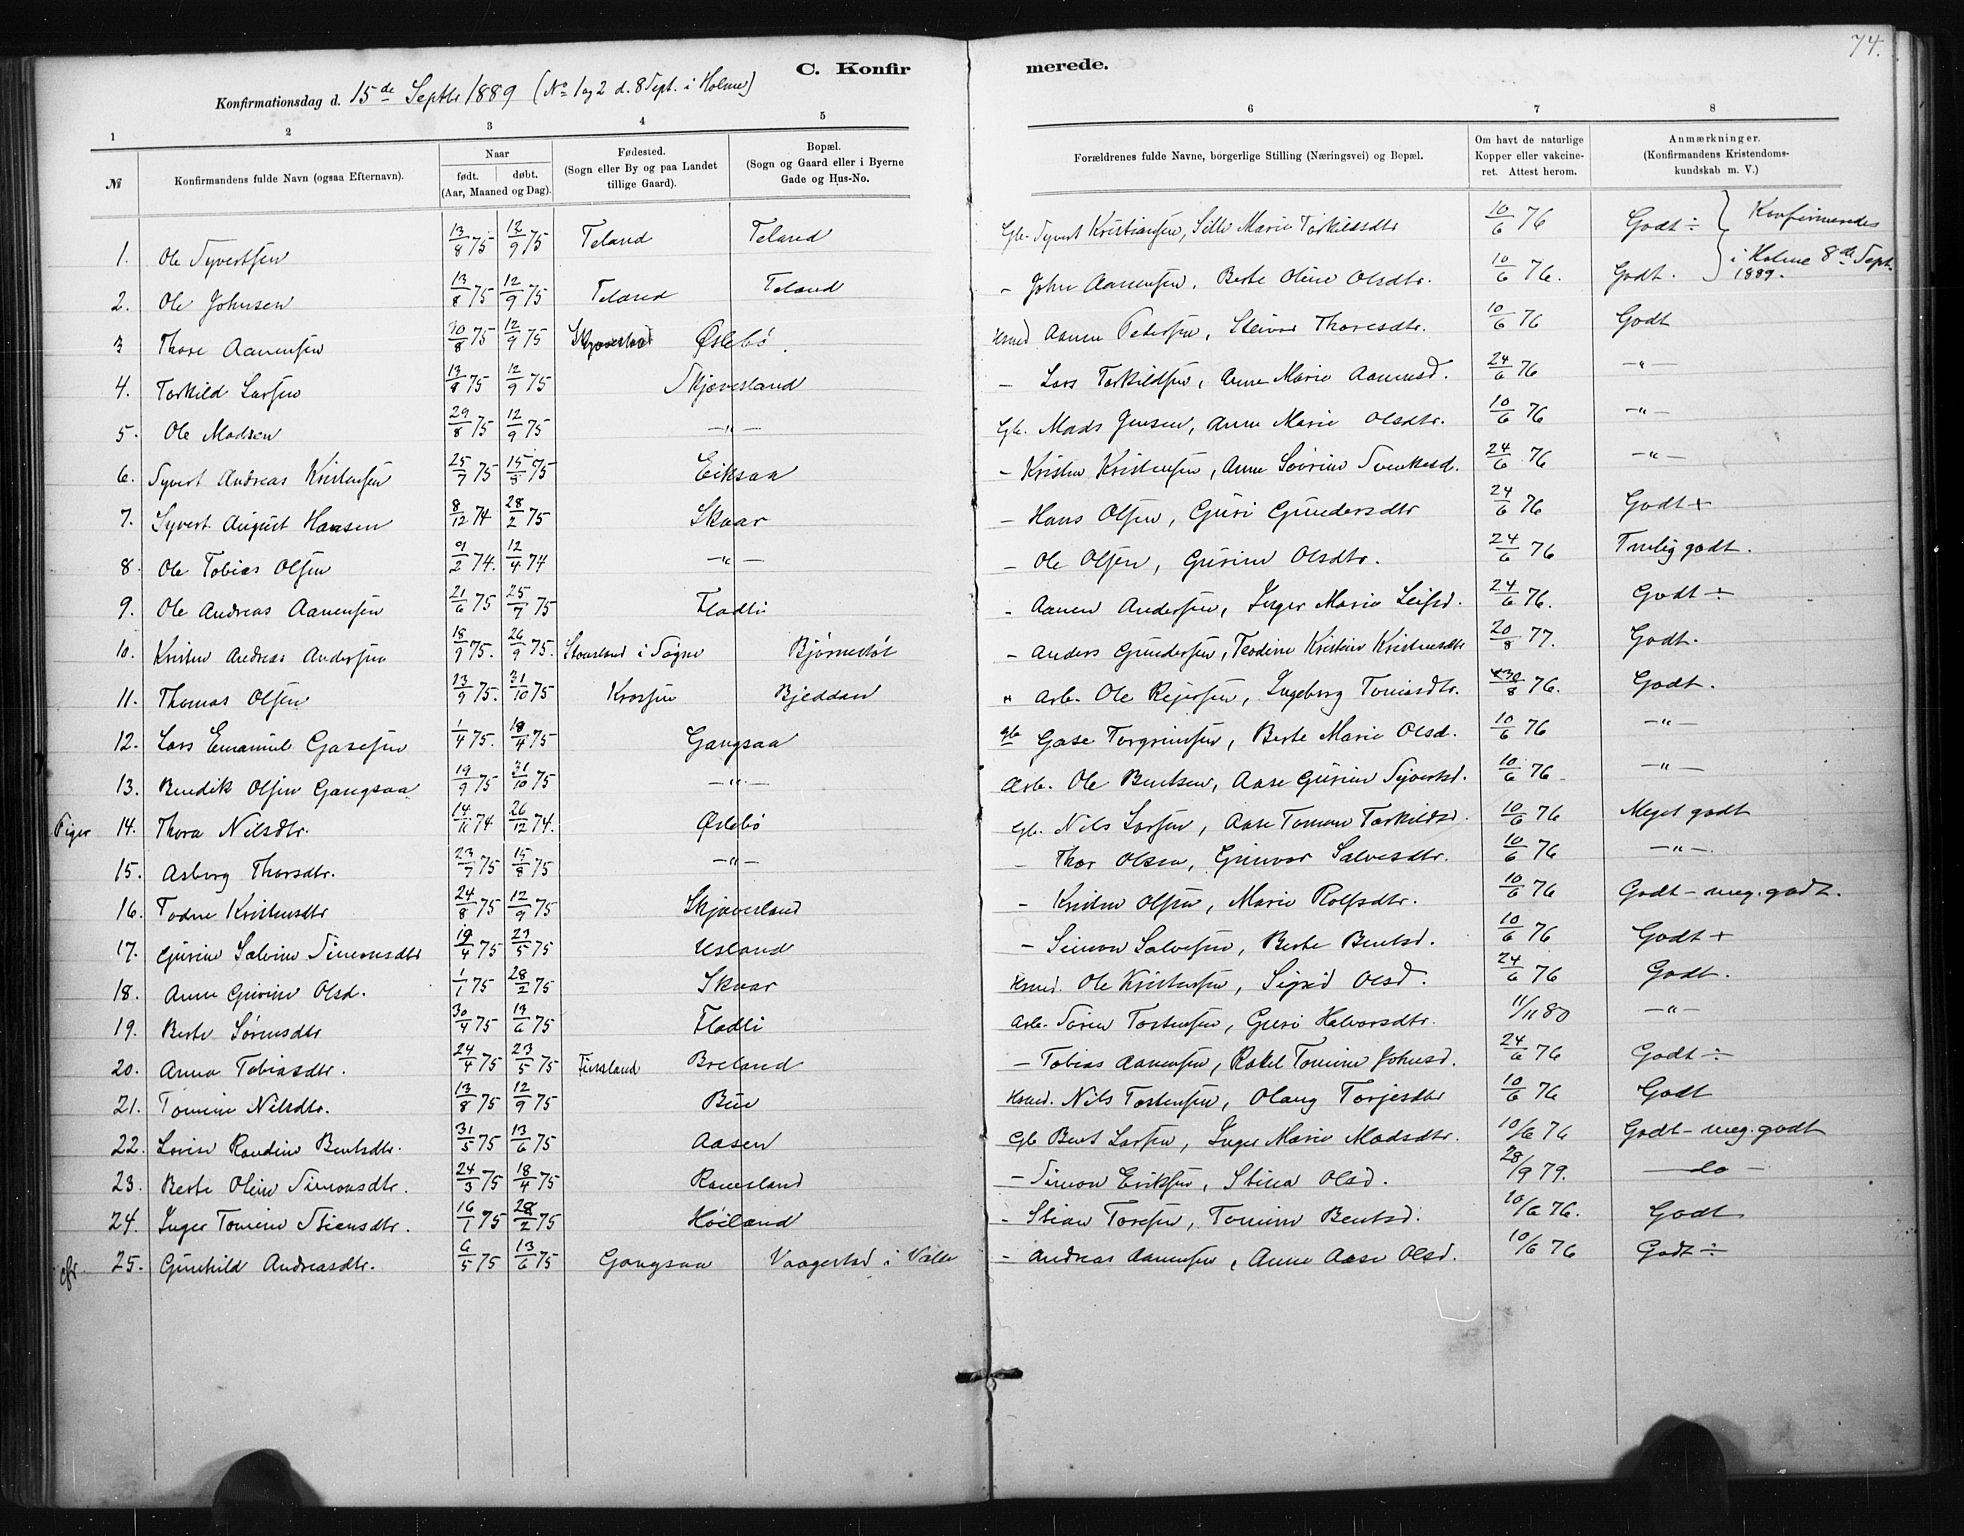 74.
C. Konfirmerede.
Konfirmationsdag d. 15de Septbr 1889 (No 1 og 2 d. 8 Sept. i Holme)
1 2 3 4 5 6 7 8
№ Konfirmandens fulde Navn (ogsaa Efternavn). Naar født. døbt. (Aar, Maaned og Dag). Fødested. (Sogn eller By og paa Landet tillige Gaard). Bopæl. (Sogn og Gaard eller i Byerne Gade og Hus-No. Forældrenes fulde Navne, borgerlige Stilling (Næringsvei) og Bopæl. Om havt de naturlige Kopper eller vakcineret. Attest herom. Anmærkninger. (Konfirmandens Kristendomskundskab m. V.)
1. Ole Syvertsen 13/8 75 12/9 75 Teland Teland Gb. Syvert Kristiansen, Silli Marie Torkildsdtr 10/6 76 Godt ÷ } Konfirmeredes
2. Ole Johnsen 13/8 75 12/9 75 Teland Teland – John Aanensen, Berte Oline Olsdtr. 10/6 76. Godt. } i Holme 8de Sept. 1889.
3 Thore Aanensen 30/8 75 12/9 75 Skjævesland Øslebø. Hsmd Aanen Pedersen, Steinor Thoresdtr. 10/6 76 Godt
4. Torkild Larsen 13/8 75 12/9 75 Skjævesland – Lars Torkildsen, Anne Marie Aanensd. 24/6 76 –"–
5. Ole Madsen 29/8 75 12/9 75 –"– Gb. Mads Jensen, Anne Marie Olsdtr. 10/6 76 –"–
6. Syvert Andreas Kristensen 25/7 75 15/8 75 Eiksaa – Kristen Kristensen, Anne Sørine Svenkesd. 24/6 76 –"–
7. Syvert August Hansen 8/12 74 28/2 75 Skaar – Hans Olsen, Guri Gundersdtr 24/6 76 Godt +
8. Ole Tobias Olsen 9/2 74. 12/4 74 –"– – Ole Olsen, Gurine Olsdtr. 24/6 76 Temlig godt.
9. Ole Andreas Aanensen 21/6 75 25/7 75 Fladli – Aanen Andersen, Inger Marie Leifsd. 24/6 76. Godt ÷
10. Kristen Andreas Andersen 18/9 75. 26/9 75. i Søgne Bjørneslet – Anders Gundersen, Teodine Kristine Kristensdtr 20/8 77. Godt.
11. Thomas Olsen 23/9 75. 31/10 75 Krossen Bjeddan " Arb. Ole Reiersen, Ingeborg Tomasdtr. 30/8 76. Godt.
12. Lars Emanuel Gasesen 1/4 75. 18/4 75 Gangsaa gb Gase Torgrimsen, Berte Marie Olsd. 10/6 76 –"–
13. Bendik Olsen Gangsaa 19/9 75 31/10 75 –"– Arb. Ole Bentsen, Aase Gurine Syvertsd. 10/6 76 –"–
Piger 14. Thora Nilsdtr. 14/11 74 26/12 74. Øslebø Gb. Nils Larsen, Aase Tomine Torkildsd. 10/6 76 Meget godt
15. Asborg Thorsdtr. 23/7 75 15/8 75 –"– – Thor Olsen, Gunvor Salvesdtr. 10/6 76 –"–
16. Todne Kristensdtr 24/8 75 12/9 75 Skjævesland – Kristen Olsen, Marie Rolfsdtr. 10/6 76 Godt – meg. godt.
17. Gurine Salvine Simonsdtr 19/4 75 23/5 75 Usland – Simon Salvesen, Berte Bentsd. 10/6 76 Godt +
18. Anne Gurine Olsd. 1/1 75 28/2 75 Skaar Hsmd. Ole Kristensen, Sigrid Olsd. 24/6 76 Godt.
19. Berte Sørensdtr 30/4 75 13/6 75 Fladli Arb. Søren Tostensen, Guri Halvorsdtr. 11/11 80 –"–
20. Anna Tobiasdtr. 24/4 75 23/5 75 Finsland Breland – Tobias Aanensen, Rakel Tomine Johnsd. 24/6 76 Godt ÷
21. Tomine Nilsdtr. 13/8 75 12/9 75 Bue Hsmd. Nils Tostensen, Olaug Torjesdtr 10/6 76 Godt
22. Lovise Randine Bentsdtr. 31/5 75 13/6 75 Aasen Gb Bent Larsen, Inger Marie Madsdtr. 10/6 76 Godt – meg. godt
23. Berte Oline Simonsdtr. 24/3 75 18/4 75 Ravesland – Simon Eriksen, Stina Olsd. 28/9 79. – do –
24. Inger Tomine Stiansdtr. 16/1 75 28/2 75 Høiland – Stian Toresen, Tomine Bentsd. 10/6 76. Godt
cfr. 25. Gunhild Andreasdtr. 6/5 75 13/6 75 Gangsaa Vaagestad i – Andreas Aanensen, Anne Aase Olsd. 10/6 76 Godt ÷